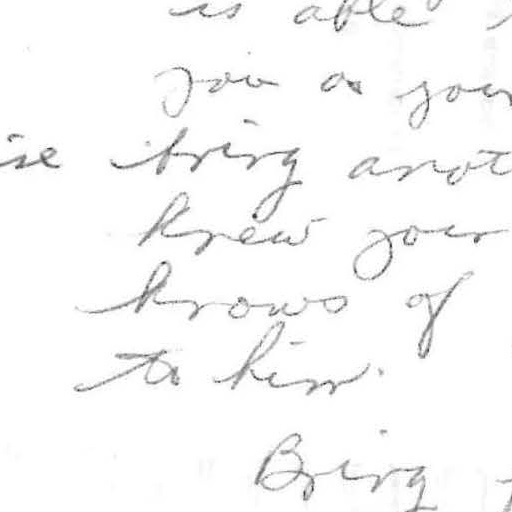 is able
you as your
ise bring anot
knew your
knows of
to him.
Bring